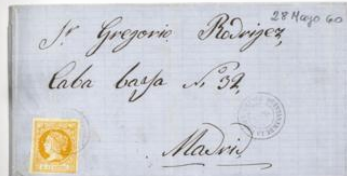 28 Mayo 60
Sr Gregorio Rodrigez,
Caba baxa No 32,
Madrid